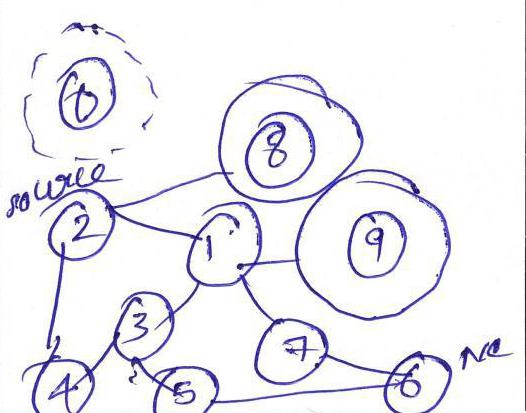 0
8
source
2
1
9
3
7
NC
4
5
6